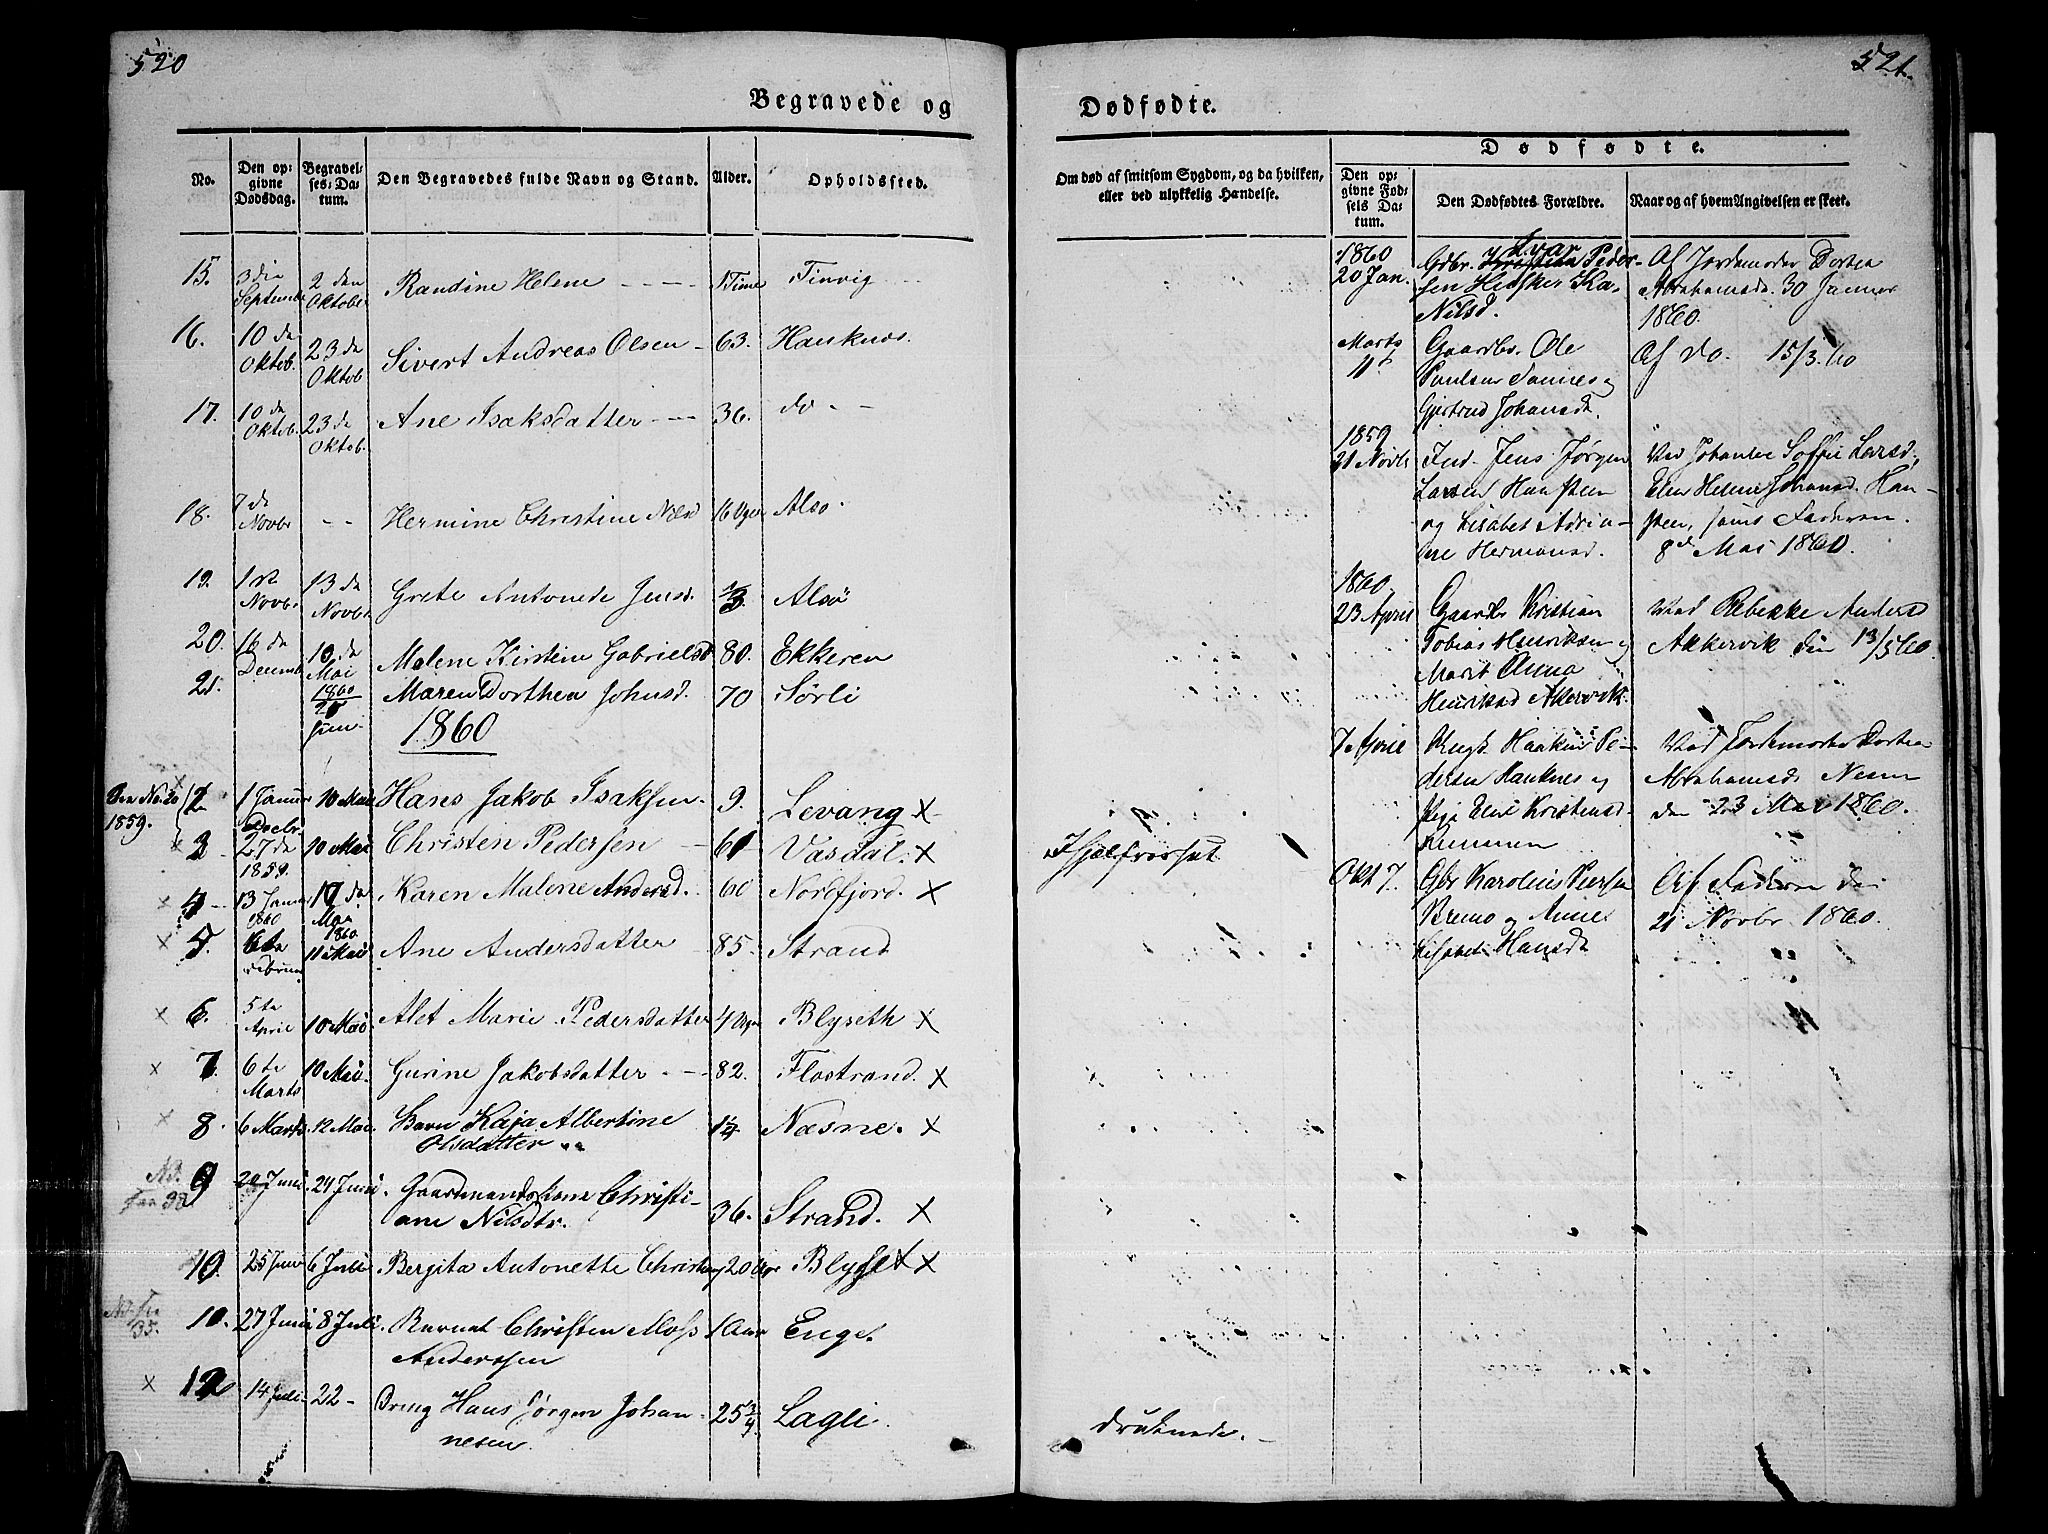 520
521.
Begravede og
Dødfødte.
No.
Den op-
givne
Dødsdag.
Begravel-
ses-Da-
tum.
Den Begravedes fulde Navn og Stand.
Alder.
Opholdssted.
15. 3die Septemb 2 den Oktobr Randine Helene 1 Time Finvig
16. 10 de Oktob. 23 de Oktob Sivert Andreas Olsen 63. Hauknes.
17. 10 de Oktob. 23 de Oktob. Ane Isaksdatter 36. do
18. 7 de Novbr - - Hermine Christine 16 Uger Alsø.
19. 1ste Novbr 13 de Novbr Grete Antonede Jensd. Alsø
20. 16 de Decemb 10 de Mai 1860 Malene Kirstine Gabrielsd 80. Ekkeren
21. Juni Maren Dorthea Johnsd. 70 Sørli
1860
See No. 20
1859.
1 Januar 10 Mai Hans Jakob Isaksen 9. Levang X
3 Decbr 27 de 1859. 10 Mai Christen Pedersen 61 Vasdal. X
4 13 Januar 1860 Mai 1860 Karen Malene Andersd. 60 Nordfjord. X
5. 6te Februar 11 Mai Ane Andersdatter 85. Strand
6. 5te April 10 Mai. Alet Marie Pedersdatter 4 Uger Blyseth X
7. 6te Marts 10 Mai. Gurine Jakobsdatter 82. Flostrand. X
8. 6 Marts 12 Mai. Barn Kaja Albertine
Olsdatter Næsne. X
9 20 Juni. 24 Juni. Gaardmandskone Christi-
ane Nilsdtr. 36. Strand. X
10. 25 Juni 6 Juli Bergita Antonette 20 Uger Blyset X
10. 27 Juni 8 Juli. Barnet Christen Moss
Anderssen 1 Aar Enge.
12 14 Juli 22 - Dreng Hans Jørgen Johan-
nesen. 25 3/4 Lagli.
Om død af smitsom Sygdom, og da hvilken,
eller ved ulykkelig Hændelse.
Ihjelfrosset
druknede.
Dødfødte.
Den op-
givne Fød-
sels Da-
tum.
Den Dødfødtes Forældre.
Naar og af hvem Angivelsen er skeet.
1860
20 Jan. Gdbr. Ivar Peder-
sen
Nilsd.
Af Jordemoder Dortea
Abrahamsd. 30 Januar
1860.
Marts
11 Gaardbr. Ole
Paulsen og
Gjertrud Johansd.
Af do. 15/3.60
1859
21 Novb. Ind. Jens Jørgen
Larsen Haasteen
og Lisabet Adria-
ne Hermansd.
Ved Johanne Soffie Larsd,
Elen Helene Johansd. Haa-
steen, samt Faderen.
8de Mai 1860.
1860
23 April Gaardbr Kristian
Tobias Henriksen og
Marit Anna
Henriksd Akkervik.
Ved Rebekke Anders
Akkervik den 13/5 60.
7 April Haakon Pe-
dersen Hauknes og
Pige Elen Kristensd
Ved Jordemoder Dortea
Abrahamsd Nesne
den 23 Mai 1860.
Okt 7. Gbr Karolius Peersen
Bremo og Anne
Lisabet Hansd
Af Faderen den
21 Novbr. 1860.